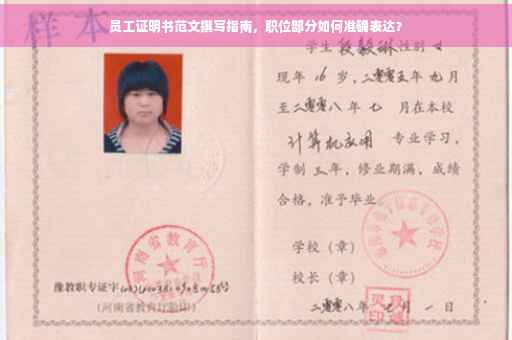 员工证明书范文撰写指南，职位部分如何准确表达？
样本
学生 段毅琳 性别 女
现年 16 岁，二零零五年 九月
至二零零八年 七 月在本校
计算机应用 专业学习，
学制 三年，修业期满，成绩
合格，准予毕业
学校（章）
校长（章）
二零零八年 七 月 一 日
河南省教育厅
豫教职专证字
（河南省教育厅验印）